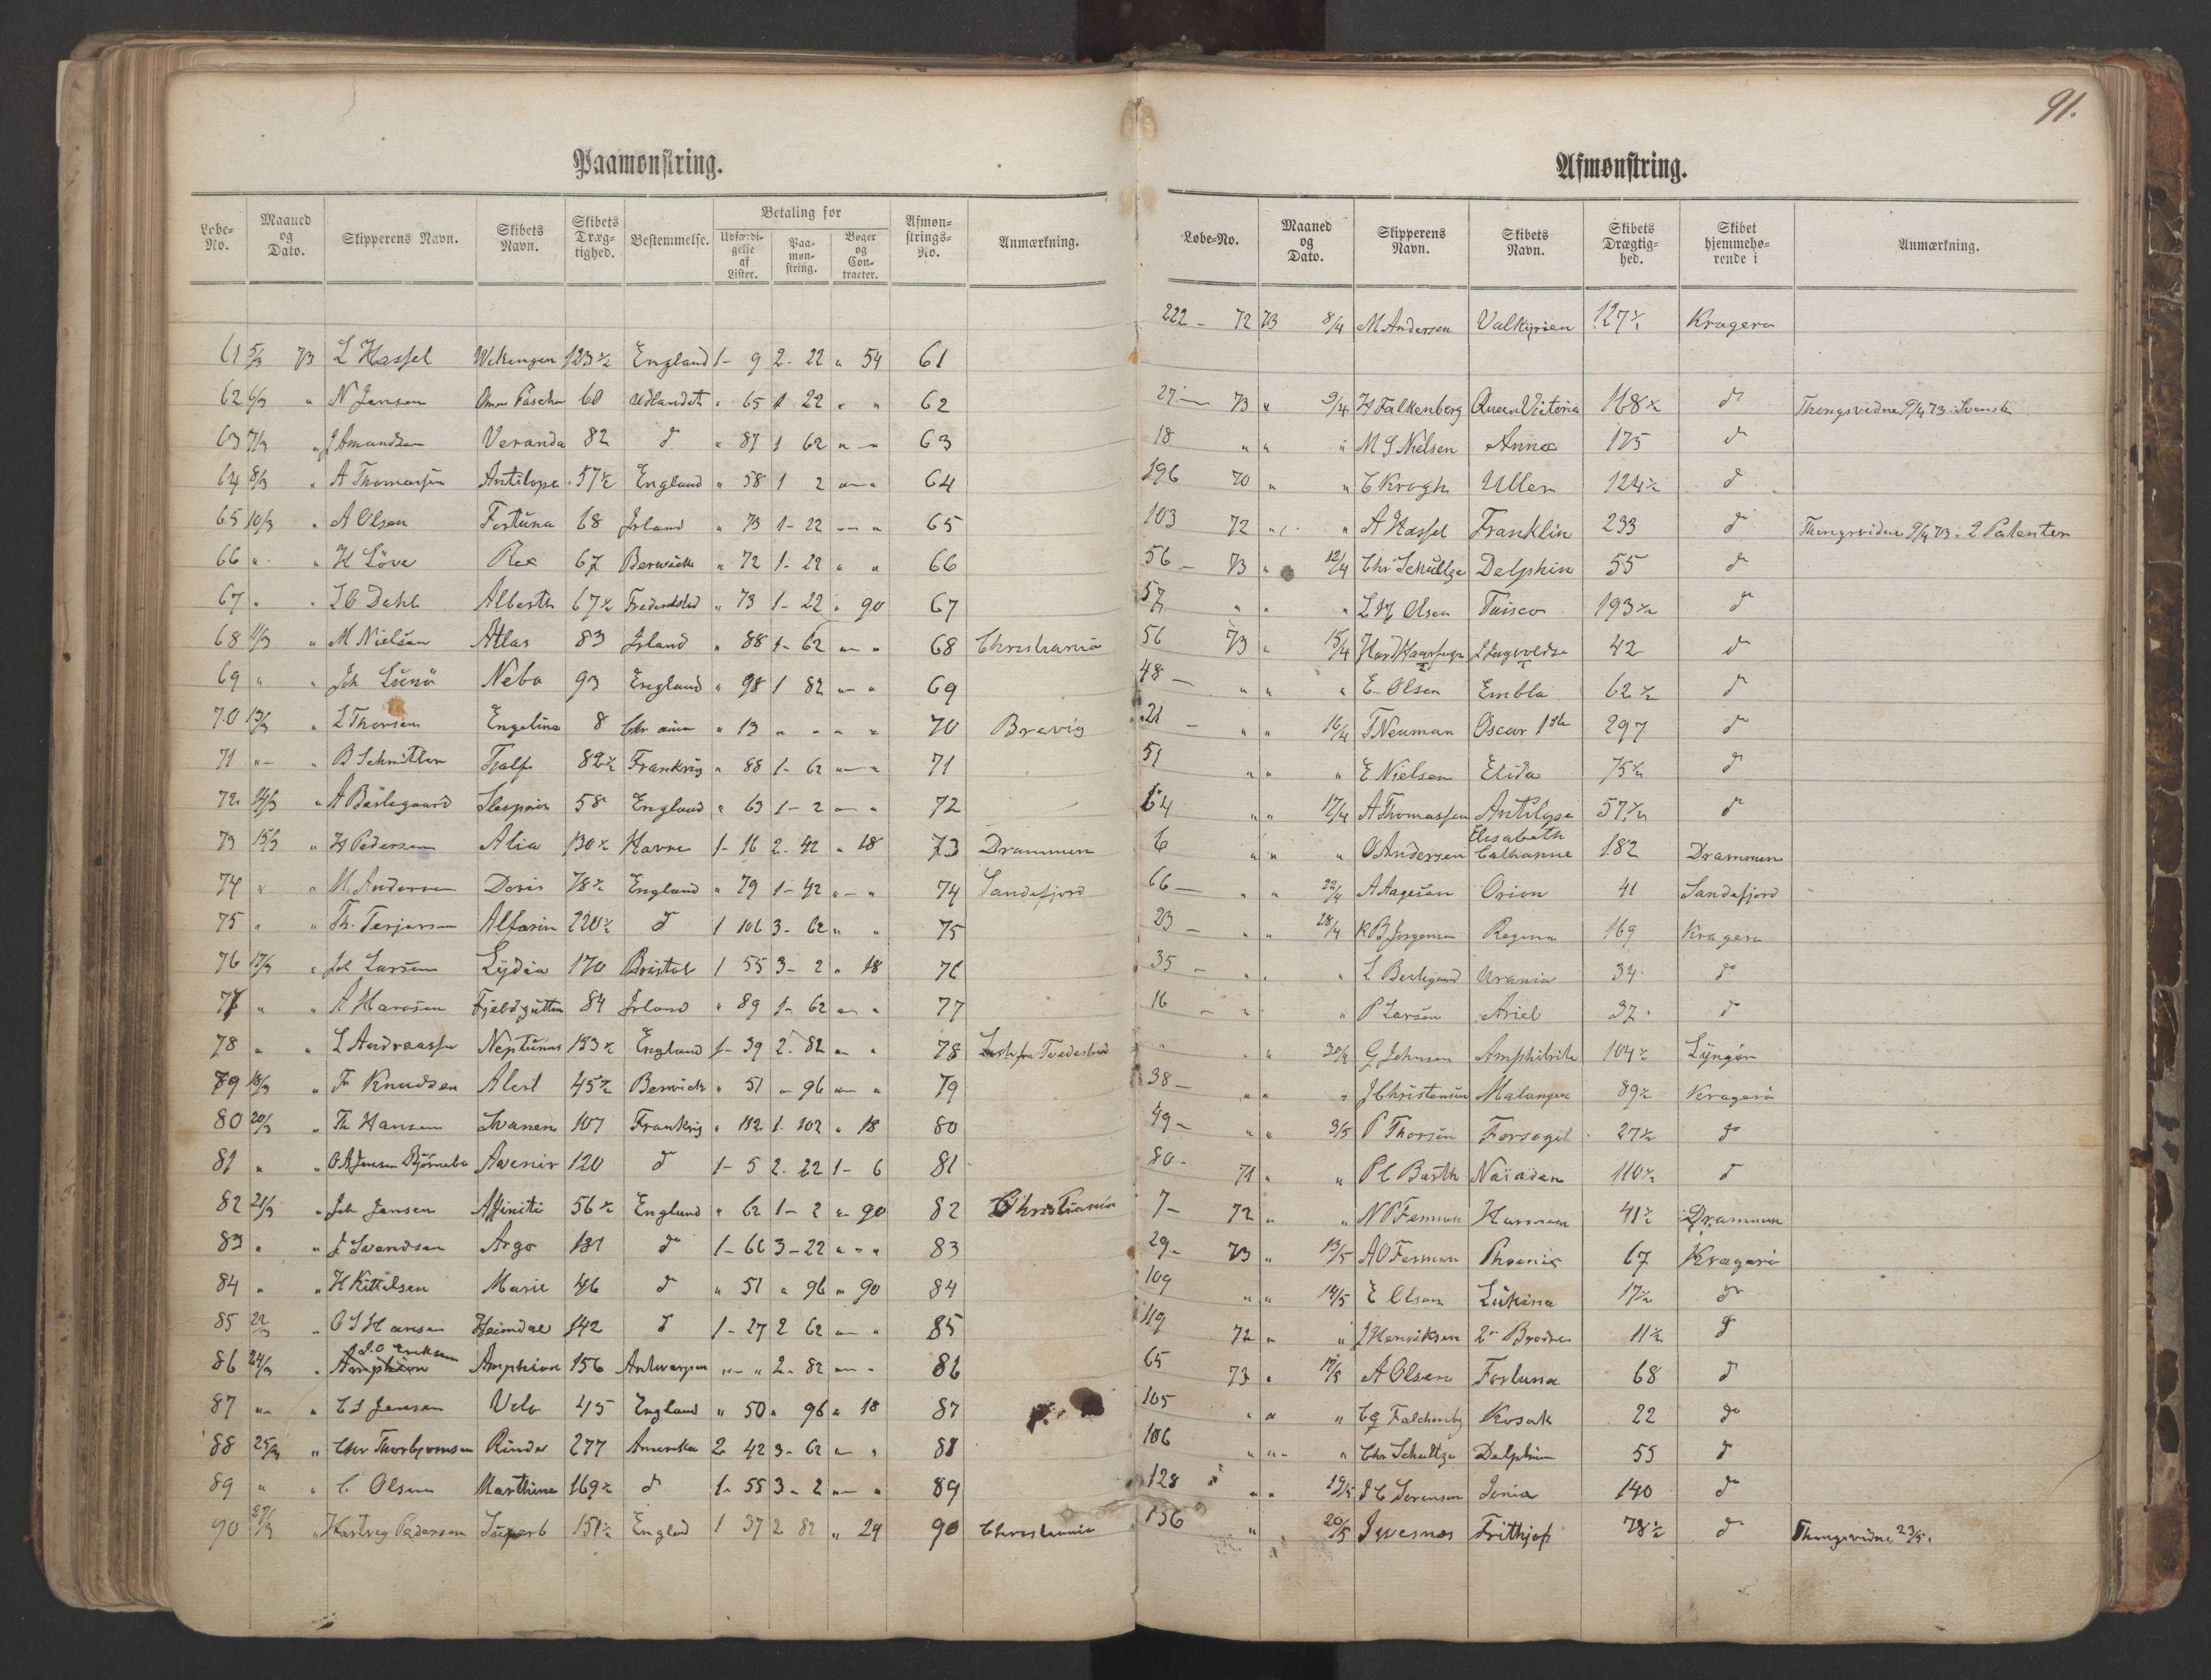 91.
Paamønstring.
Løbe-No. Maaned og Dato. Skipperens Navn. Skibets Navn. Skibets Dræg-tighed. Bestemmelse. Betaling for Udfærdi-gelse af Lister. Paa-møn-string. Bøger og Con-tracter. Afmøn-strings-No. Anmærkning.
61 5/3 73 L Hassel Wikingen 123½ England 1- 9 2- 22 " 54 61
62 6/3 " N Jensen Omer Pascha 60 Udlandet " 65 1 22 " " 62
63 7/3 " J Amundsen Veranda 82 do " 87 1 62 " " 63
64 8/3 " A Thomassen Antilope 57½ England " 58 1 2 " " 64
65 10/3 " A Olsen Fortuna 68 Island " 73 1- 22 " " 65
66 " " H Löve Rex 67 Berwick " 72 1- 22 " " 66
67 " " Dahl Alberth 67½ Frederikstad " 73 1- 22 " 90 67
68 11/3 " M Nielsen Atlas 83 Island " 88 1- 62 " " 68 Christiania
69 " " Joh Lunö Nebo 93 England " 98 1 82 " " 69
70 13/3 " L Thorsen Engelina 8 " 13 " " " " 70 Brevig
71 " " B Schmitler Tjalfe 82½ Frankrig " 88 1- 62 " " 71
72 14/3 " A Bærlegaard Sleipner 58 England " 63 1- 2 " " 72
73 15/3 " H Pedersen Alia 130½ Havre 1- 16 2- 42 " 18 73 Drammen
74 " " M Andersen Doris 78½ England " 79 1- 42 " " 74 Sandefjord
75 " " Th. Terjesen Alfarin 220½ do 1 106 3- 62 " " 75
76 17/3 " Joh Larsen Lydia 170 Bristol 1 55 3- 2 " 18 76
77 " " A Hansen Fjeldgutten 84 Island " 89 1- 62 " " 77
78 " " L Andreassen Neptunus 153½ England 1- 39 2- 82 " " 78 Tvedestrand
79 18/3 " F Knudsen Alert 45½ Berwick " 51 " 96 " " 79
80 20/3 " Th Hansen Svanen 107 Frankrig " 112 1- 102 " 18 80
81 " " O A Jensen Björnebo Avenir 120 do 1- 5 2- 22 1- 6 81
82 21/3 " Joh Jensen Affinite 56½ England " 62 1- 2 " 90 82 Christiania
83 " " J Svendsen Argo 181 do 1- 66 3- 22 " " " 83
84 " " H Kittelsen Marie 46 do " 51 " 96 " 90 84
85 22/3 " O S Hansen Heimdal 142 do 1- 27 2 62 " " 85
86 24/3 " Amphion J.O Eriksen Amphion 156 Antwerpen " " 2- 82 " " 86
87 " " C S Jensen Velo 45 England " 50 " 96 " 18 87
88 25/3 " Chr Thorbjornsen Rinda 277 Amerika 2 42 3- 62 " " 88
89 " " C Olsen Marthine 169½ do 1- 55 3- 2 " " 89
90 27/3 " Hartvig Pedersen Superb 151½ England 1 37 2 82 " 24 90 Christiania
Afmønstring.
Løbe-No. Maaned og Dato. Skipperens Navn. Skibets Navn. Skibets Drægtig-hed. Skibet hjemmehø-rende i Anmærkning.
222 - 72 73 8/4 M Andersen Valkyrien 127½ Kragerø
27 - 73 " 9/4 H Falkenberg Queen Victoria 168½ do Thingsvidne 9/4 73. Svensk
18 " " " M S Nielsen Anna 175 do
196 70 " " C Krogh Uller 124½ do
103 72 " " A Hassel Franklin 233 do Thingsvidne 9/4 73. 2 Patenter
56 - 73 " 12/4 Chr Schultze Delphin 55 do
57 " " " L M Olsen Tuisco 193½ do
56 73 " 15/4 42 do
48 - " " " E Olsen Embla 62½ do
21 - " " 16/4 T Neuman Oscar 1ste 297 do
51 " " " E Nielsen Elida 75½ do
64 " " 17/4 A Thomassen Antilope 57½ do
6 " " " O Andersen Elisabeth Cathanne 182 Drammen
66 - " " 22/4 A Aagesen Orion 41 Sandefjord
23 - " " 28/4 K B Jörgensen Regina 169 Kragerø
35 - " " " L Berlegaard Urania 34 do
16 - " " P Larsen Ariel 37 do
" " " 30/4 G Johnsen Amphitrite 104½ Lyngör
38 - " " " J Christensen Malangen 89½ Kragerö
49 - " " 3/5 P Thorsen Forsøget 27½ do
80 - 71 " " P C Barth Naiaden 110½ do
7 - 72 " " N P Feman 41½ Drammen
29 - 73 " 13/5 A O Feman Phoenix 67 Kragerö
109 " " 14/5 E Olsen Lukina 17½ do
119 72 " " J Henriksen 2de Brødre 11½ do
65 73 " 17/5 A Olsen Fortuna 68 do
105 " " " C G Falchenberg Kosak 22 do
106 " " " Chr Schultze Delphin 55 do
128 " " 19/5 J C Sorensen Ionia 140 do
136 " 20/5 J Wesnes Frithjof 78½ do Thingsvidne 23/5.